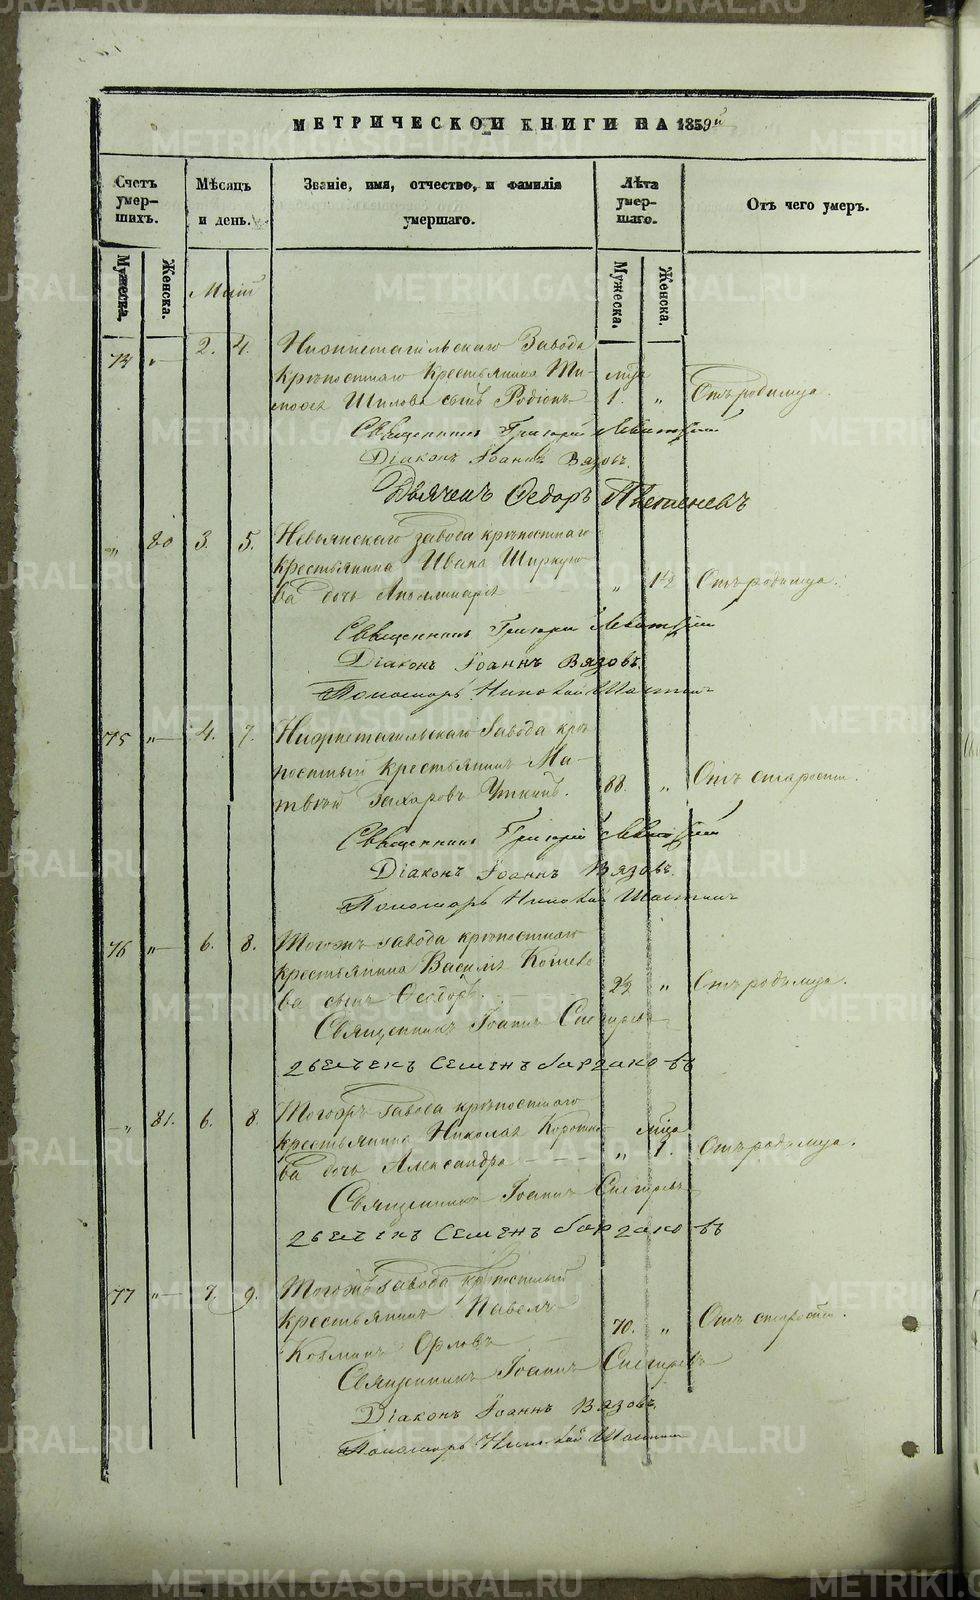 МЕТРИЧЕСКОЙ КНИГИ НА 1859й
Счетъ умер- шихъ.
Мѣсяцъ и день.
Званіе, имя, отчество, и фамилія умершаго.
Лѣта умер- шаго.
Отъ чего умеръ.
Мужеска.
Женска.
Мужеска.
Женска.
Май
2. 4. Нижнетагильскаго Завода
крѣпостнаго крестьянина Ти- мѣс
мофея Шилова сынъ Родіонъ 1. „ Отъ родимца.
Священникъ Григорій Левитскій
Діаконъ Іоаннъ Вязовъ.
Дьячекъ Ѳедоръ
„ 80 3. 5. Невьянскаго завода крѣпостнаго
крестьянина Ивана
ва дочь Аполлинарія „ 1½ Отъ родимца.
Священникъ Григорій Левитскій
Діаконъ Іоаннъ Вязовъ.
Пономарь Николай
75 „ 4. 7. Нижнетагильскаго Завода крѣ-
постный крестьянинъ Ма-
твѣй Захаровъ Уткинъ. 88. „ Отъ старости.
Священникъ Григорій Левитскій
Діаконъ Іоаннъ Вязовъ.
Пономарь Николай
76 „ 6. 8. Тогожъ завода крѣпостнаго
крестьянина Василья
ва сынъ Ѳеодоръ. 2½ „ Отъ родимца.
Священникъ Іоаннъ Снегиревъ
дьечекъ Семенъ Бордаковъ
„ 81. 6. 8. Тогожъ завода крѣпостнаго
крестьянина Николая мѣсца
ва дочь Александра „ 1. Отъ родимца.
Священникъ Іоаннъ Снегиревъ
дьечекъ Семенъ Бордаковъ
77 „ 7. 9. Тогожъ завода крѣпостный
крестьянинъ Павелъ
Козминъ Орловъ 70. „ Отъ старости.
Священникъ Іоаннъ Снегиревъ
Діаконъ Іоаннъ Вязовъ.
Пономарь Николай
METRIKI.GASO-URAL.RU